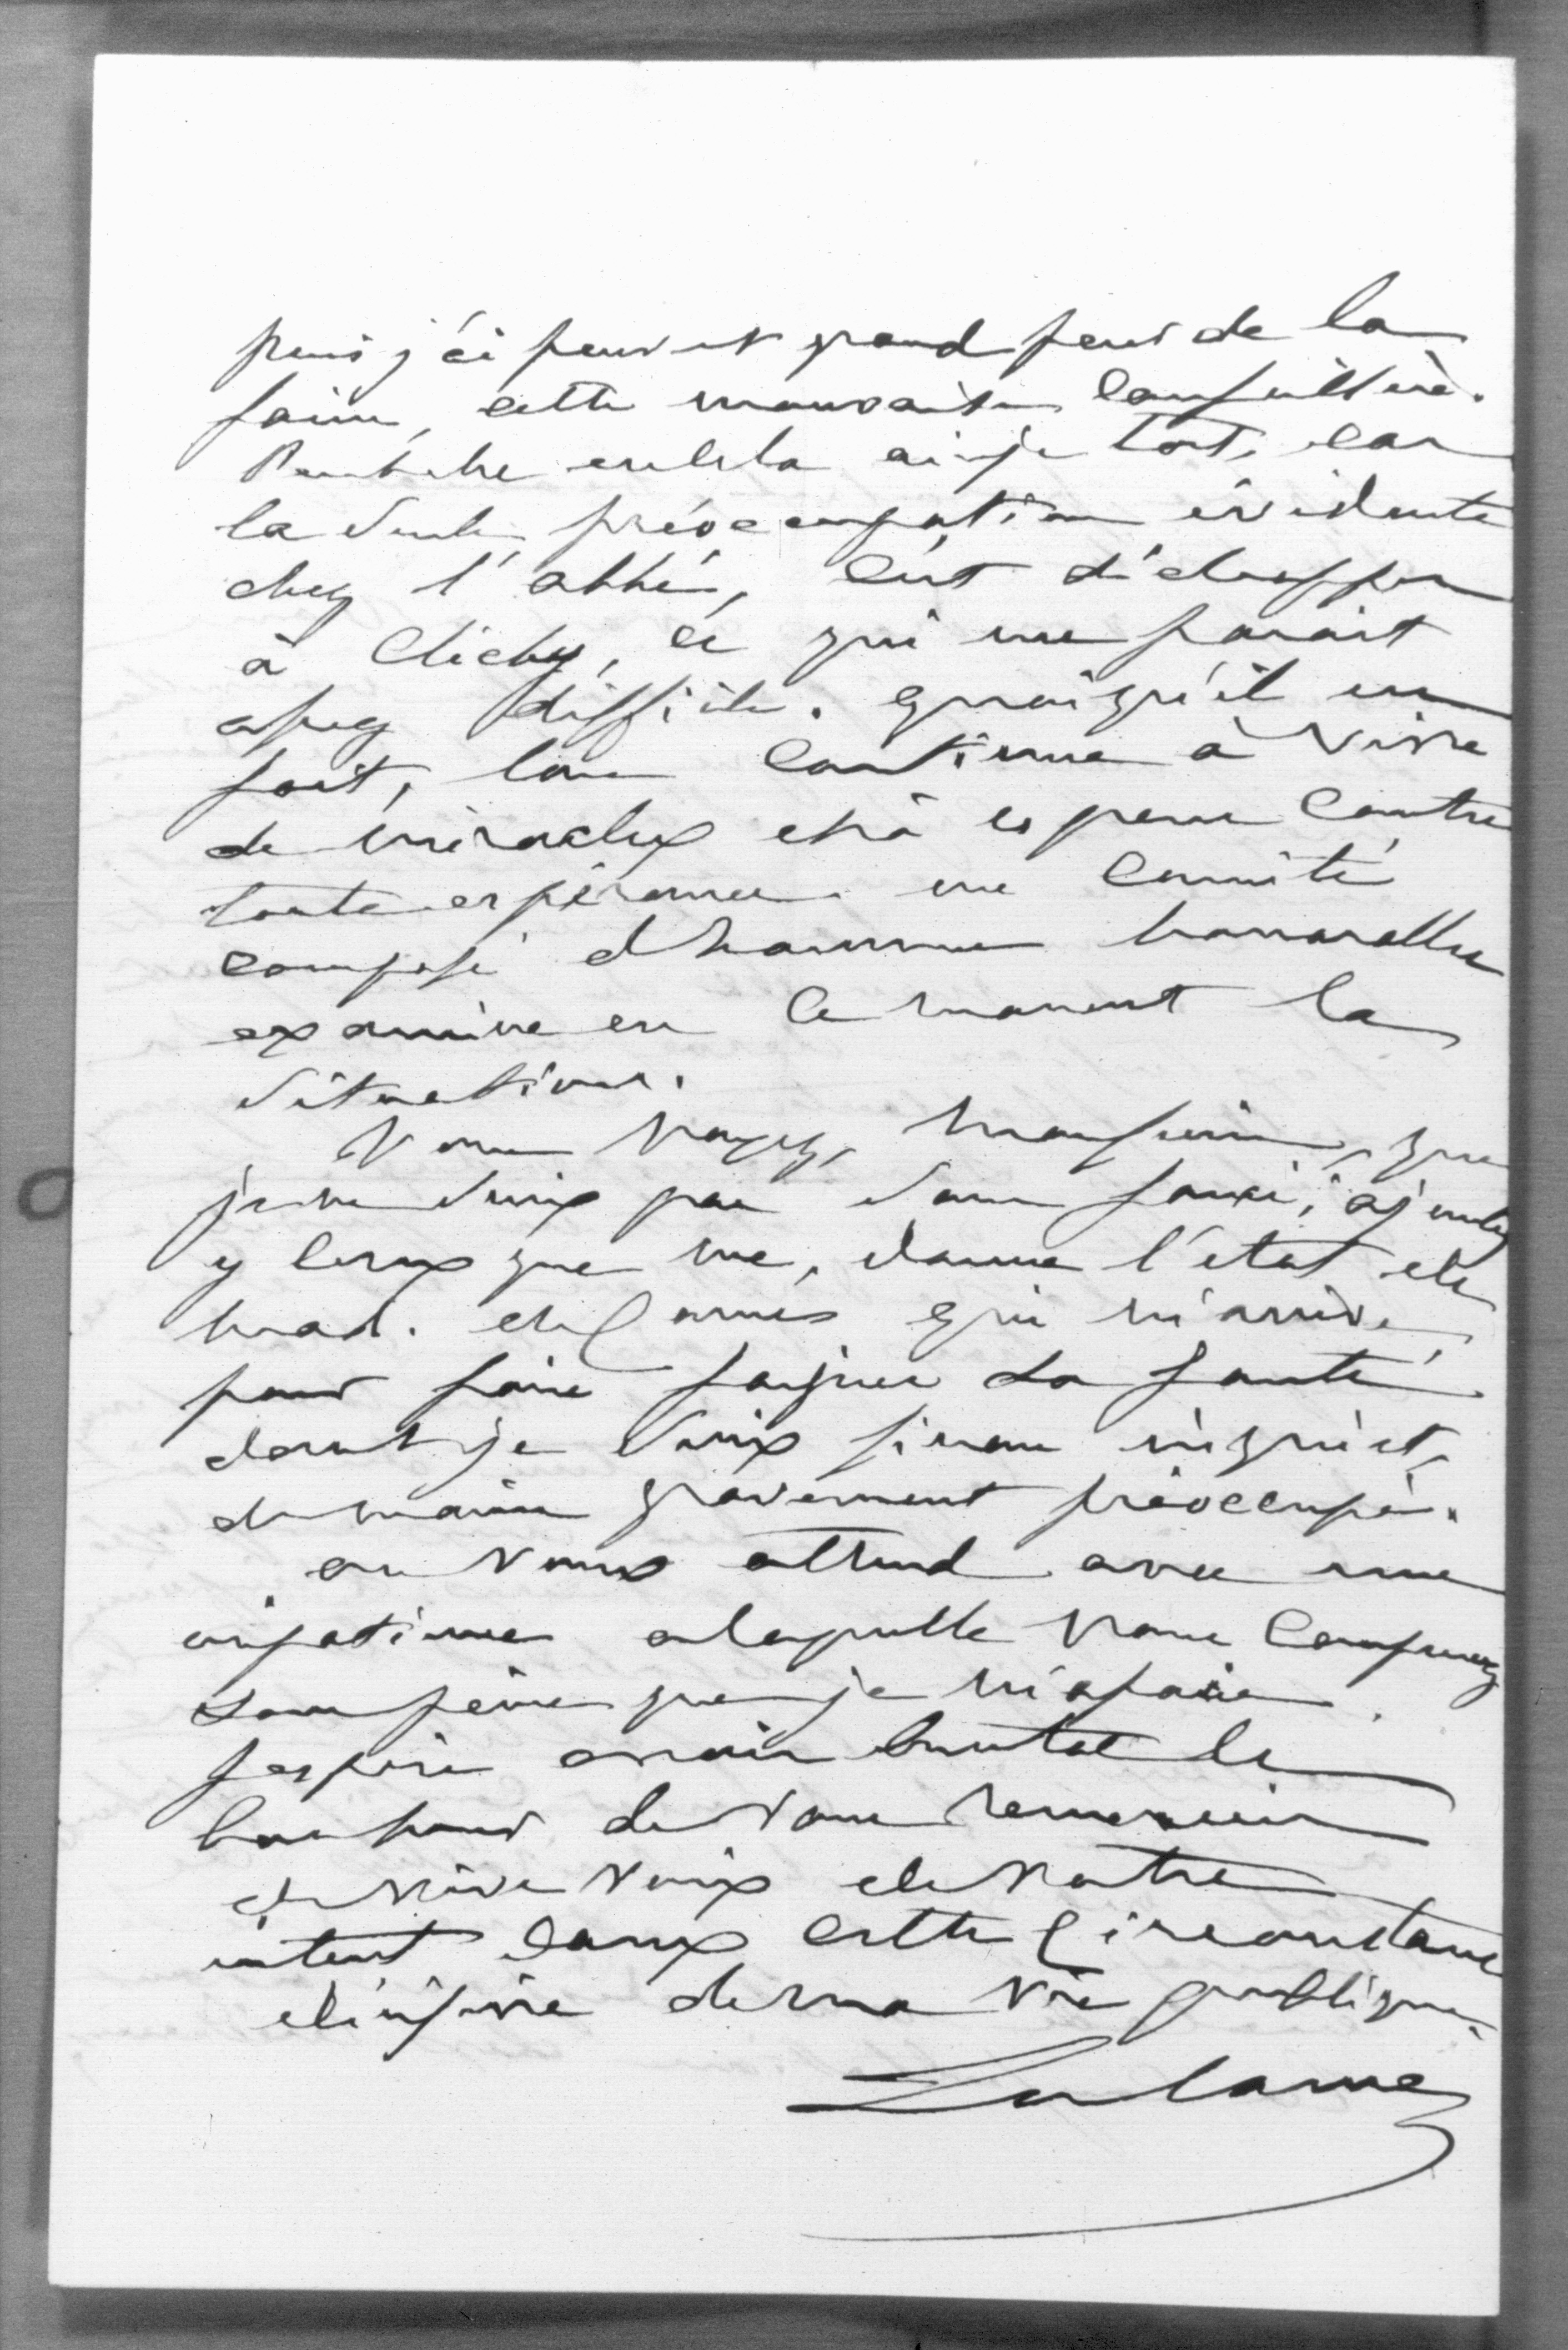 puis j'ai peur et grand peur de la
faim, cette mauvaise conseillère.
Peut-être en cela ai-je tort, car
la seule préoccupation évidente
chez l'abbé, c'est d'échapper
à Clichy, ce qui me parait
assez difficile. quoiqu'il en
soit, l'on continue à vivre
de miracles et à espérer contre
toute espérance. un comité
composé d'hommes honorables
examine en ce moment la
situation.
Vous voyez, Monsieur, que
je ne suis pas sans souci; ajoutez
y ceux que me donne l'état de
Mad. de qui m'arrive
pour faire soigner sa santé
dont je suis sinon inquiet,
du moins gravement préoccupé.
on vous attend avec une
impatience a laquelle vous comprenez
sans peine que je m'associe.
J'espère avoir bientôt le
bonheur de vous remercier
de vive voix de votre
dans cette circonstance
de ma vie publique.